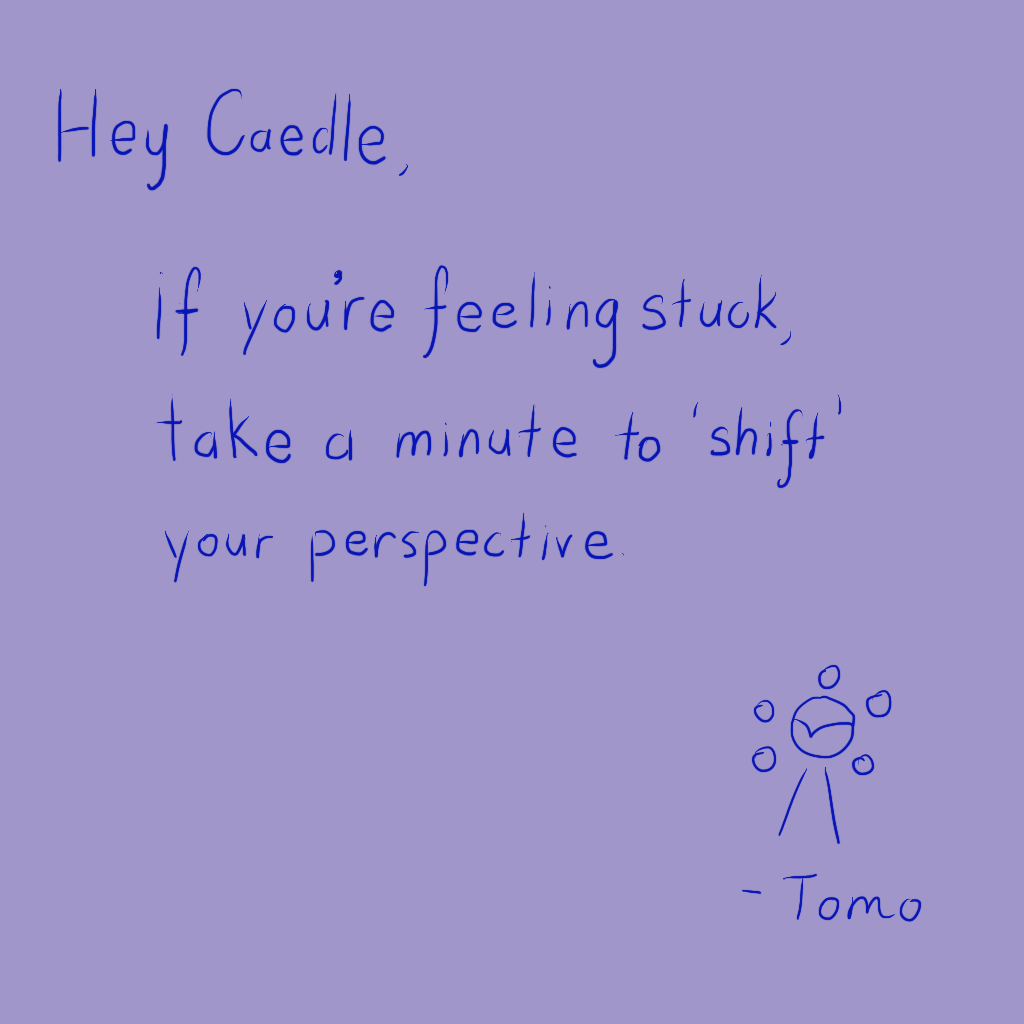 Hey Caedle,
if you're feeling stuck,
take a minute to 'shift'
your perspective.
- Tomo